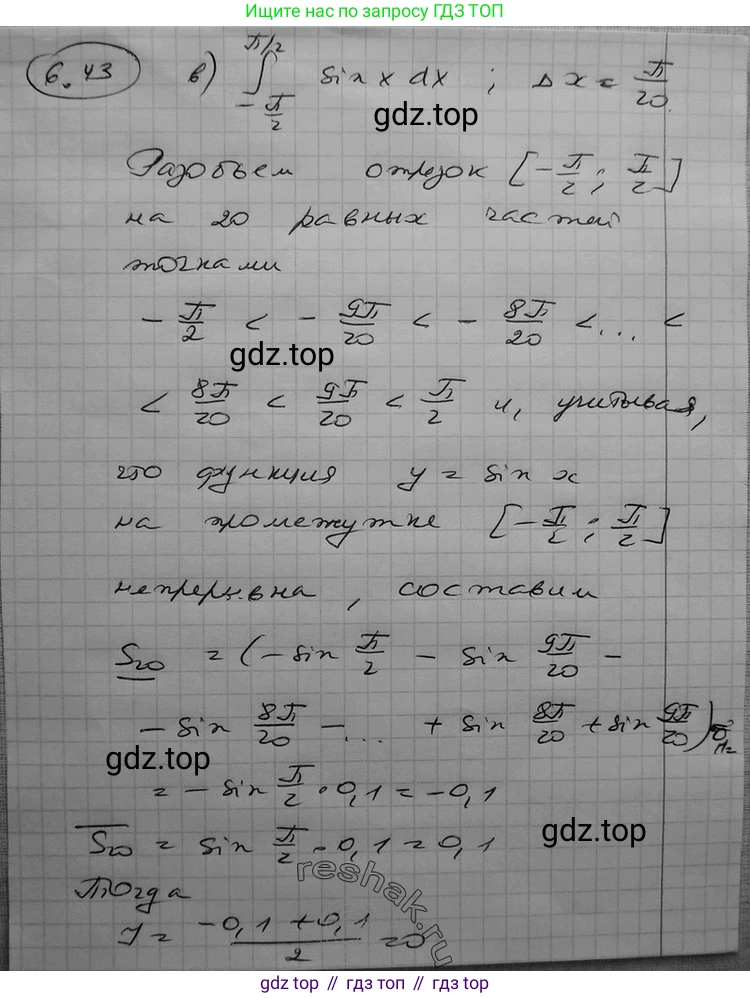 Ищите в поиске ГДЗ ТОП
6.43 в) ∫ π/2 -π/2 sin x dx ; Δx = π/20.
gdz.top
Разобьем отрезок [-π/2 ; π/2]
на 20 равных частей
точками
-π/2 < -9π/20 < -8π/20 < ... <
gdz.top
< 8π/20 < 9π/20 < π/2 и, учитывая,
что функция y = sin x
на промежутке [-π/2 ; π/2]
непрерывна, составим
S20 = (-sin π/2 - sin 9π/20 -
- sin 8π/20 - ... + sin 8π/20 + sin 9π/20)
gdz.top
= -sin π/2 · 0,1 = -0,1
S20 = sin π/2 · 0,1 = 0,1
gdz.top
reshak.ru
Тогда
J = -0,1 + 0,1 / 2 = 0
gdz top // гдз топ // gdz.top // гдз топ